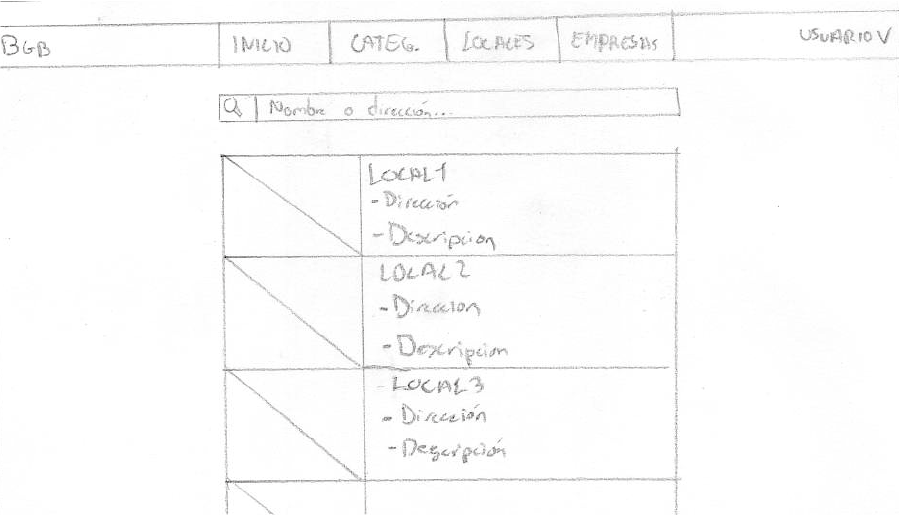 BGB INICIO CATEG. LOCALES EMPRESAS USUARIO V
Nombre o dirección...
LOCAL 1
- Dirección
- Descripcion
LOCAL 2
- Direccion
- Descripcion
- LOCAL 3
- Dirección
- Descripción